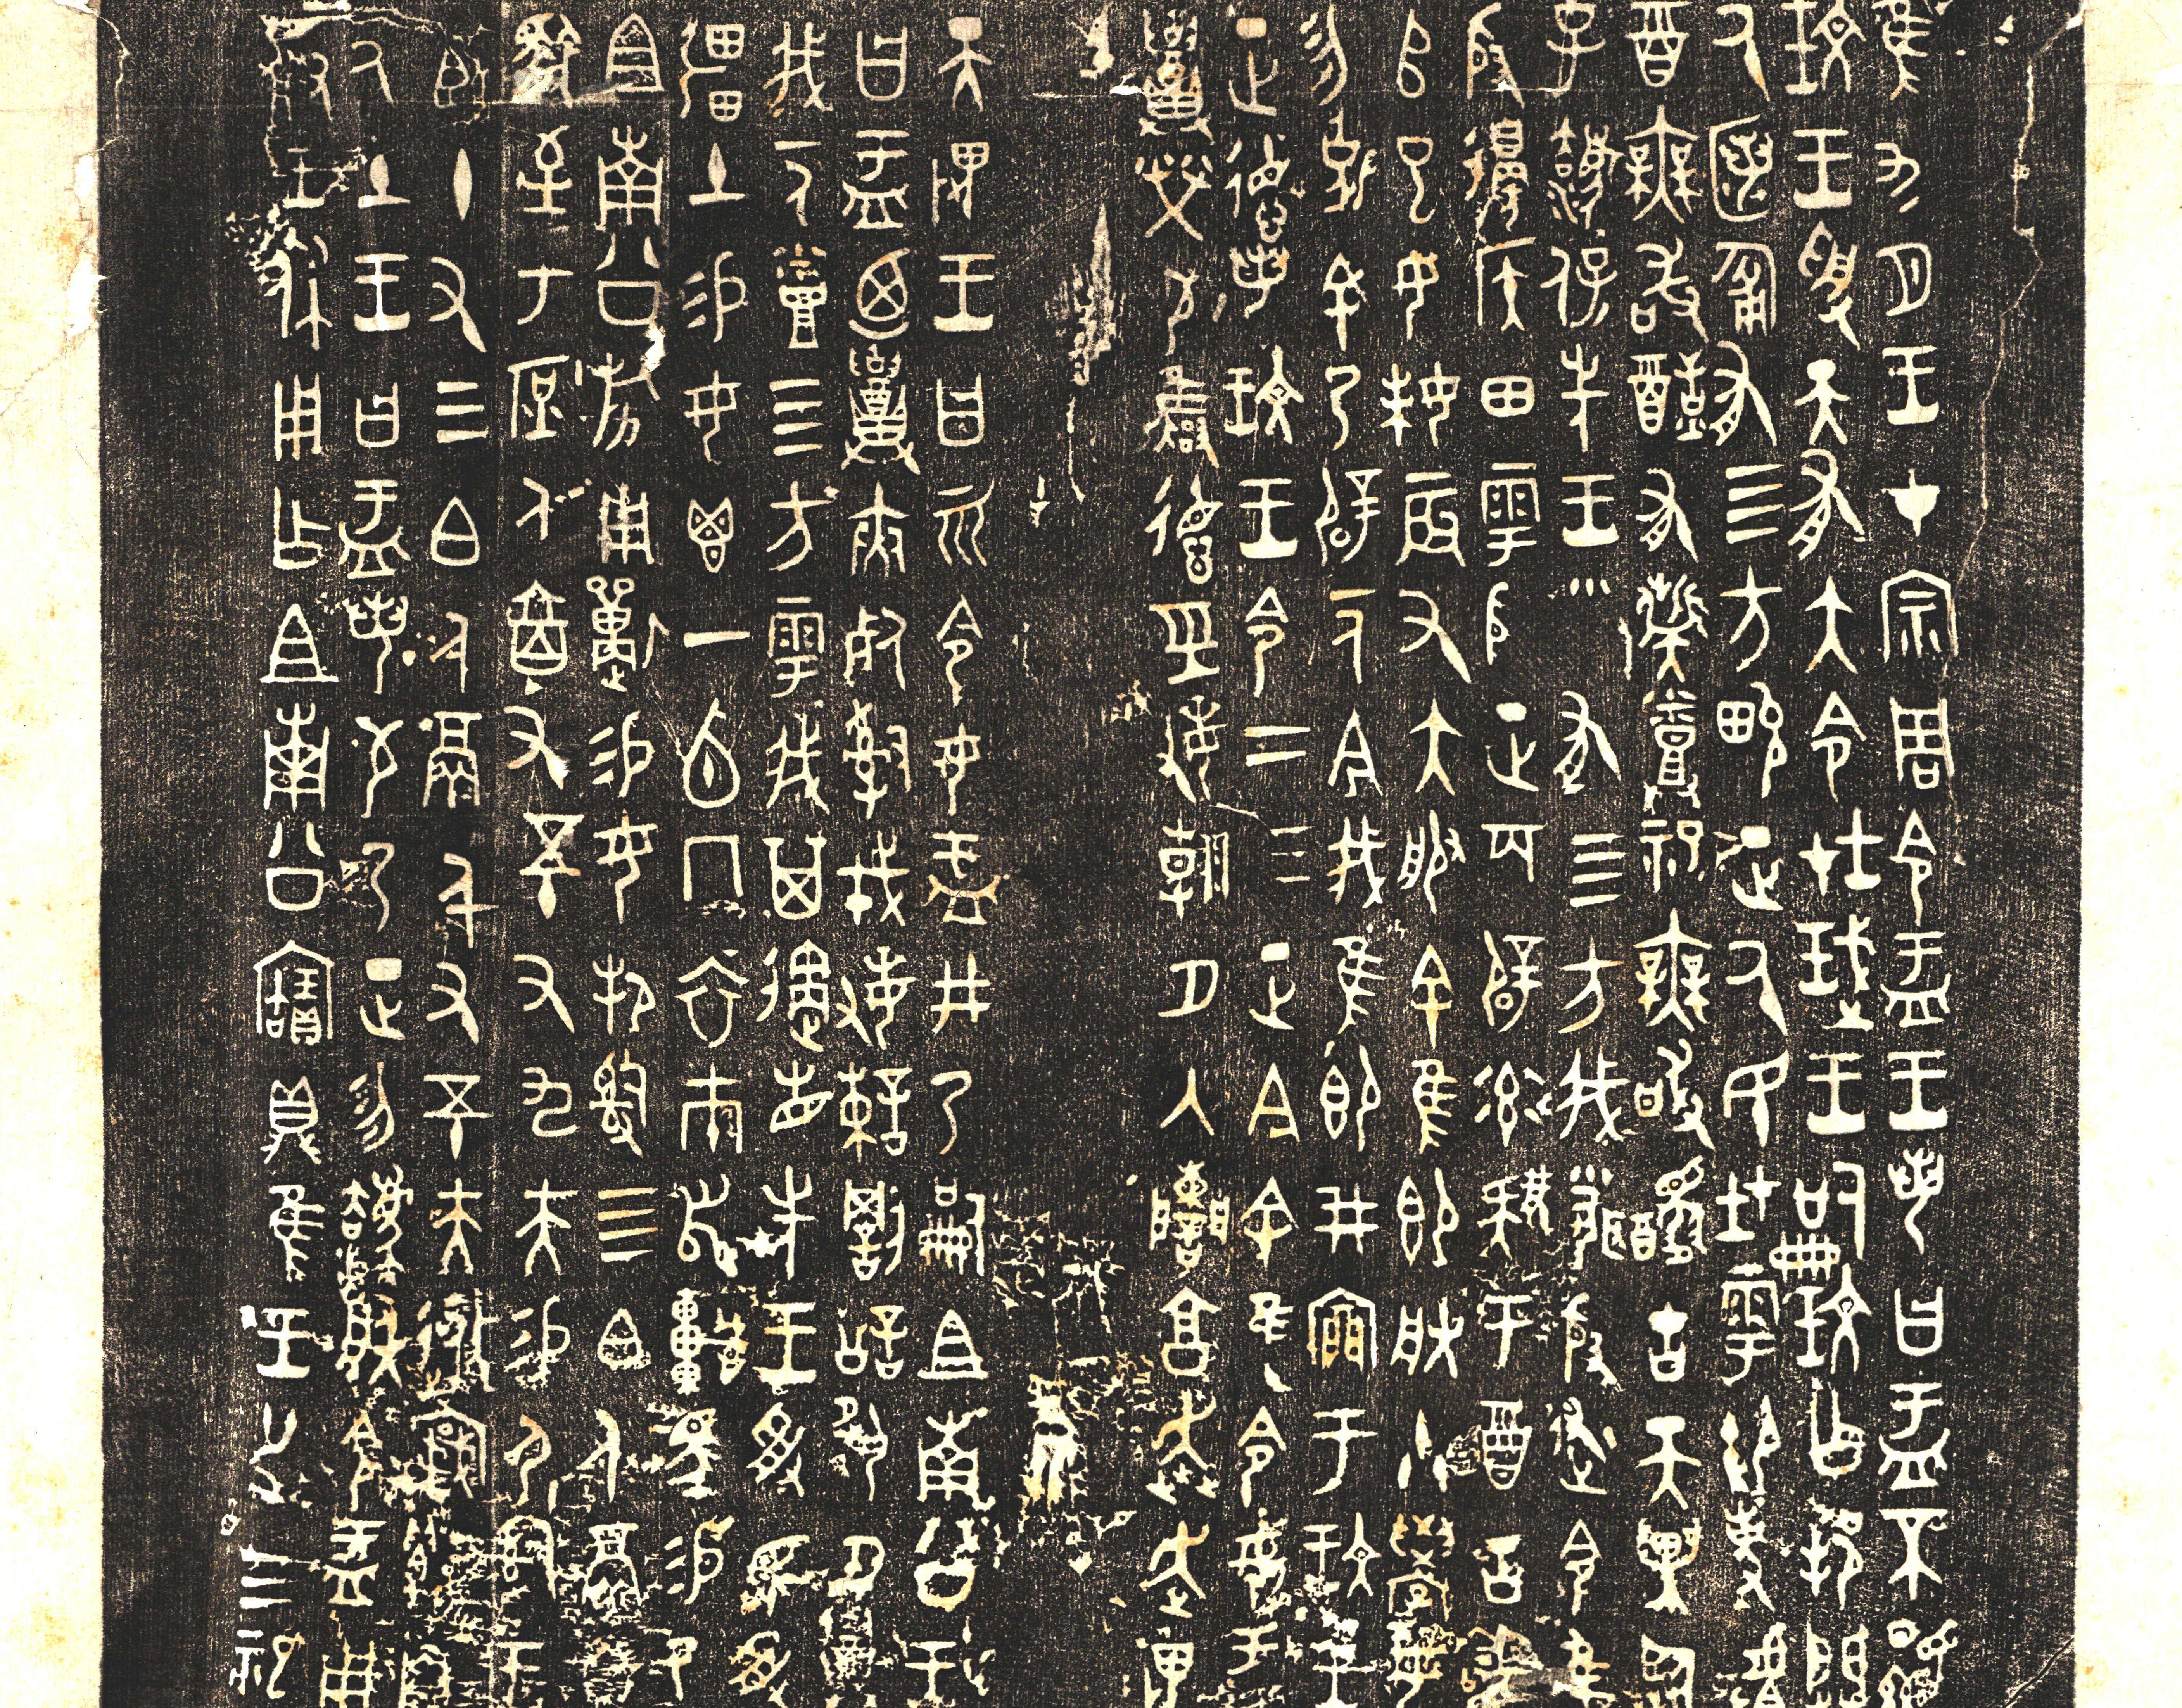 隹九月王才宗周令盂王若曰盂不顯
玟王受天有大令在珷王嗣玟乍邦闢
厥匿匍有四方畯正厥民在雩御事𠭯
酉無敢酖有髭烝祀無敢醻古天異臨
子灋保先王有四方我聞殷述令隹
殷邊侯田雩殷正百辟率肄于酉古喪
𠂤巳女妹辰又大服余隹即朕小學女
勿克余乃辟一人今我隹即井廩于玟王
正德若玟王令二三正今余隹令女盂
召榮敬雝德巠敏朝夕入讕享奔走畏
天畏王曰而令女盂井乃嗣且南公王
曰盂乃召夾死司戎敏諫罰訟夙夕召
我一人烝四方雩我其遹省先王受民受
彊土易女鬯一卣冂衣巿舄車馬易乃
且南公旂用狩易女邦司四白人鬲自
馭至于庶人六百又五十又九夫易尸司王
臣十又三白人鬲千又五十夫極𡩜遷自
厥土王曰盂若敬乃正勿灋朕令盂用
對王休用乍且南公寶鼎隹王廿又三祀